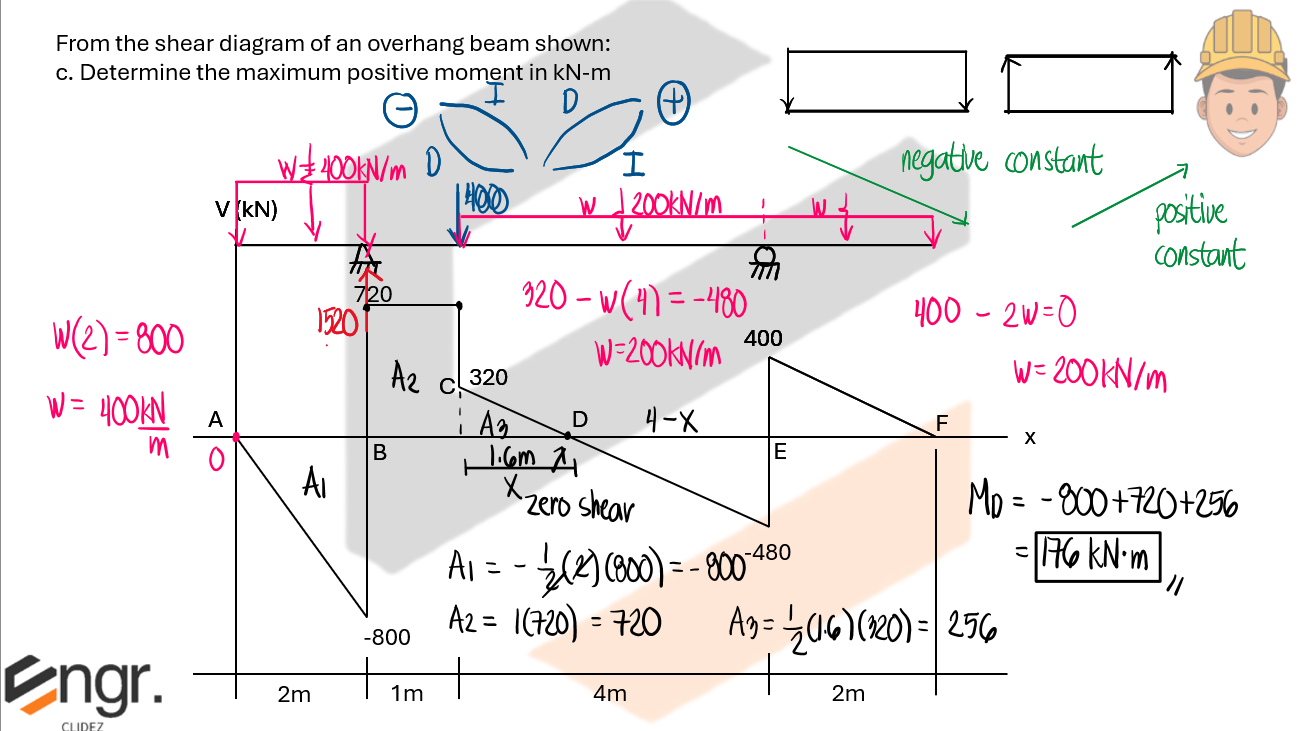 From the shear diagram of an overhang beam shown:
c. Determine the maximum positive moment in kN-m
⊖ I D ⊕
D I
negative constant
positive
constant
W = 400kN/m
400
W 200kN/m
W
V (kN)
720
1520
320 - W(4) = -480
W=200kN/m
400 - 2W=0
W = 200KN/m
W(2) = 800
W = 400kN/m
400
A2
C 320
A
0
A3
D
4-X
F
x
B
1.6m
E
A1
X
zero shear
MD = -800+720+256
= 176 kN·m
A1 = - 1/2 (2)(800) = -800
-480
A2 = 1(720) = 720
A3 = 1/2 (1.6)(320) = 256
-800
2m 1m 4m 2m
Engr.
CLIDEZ